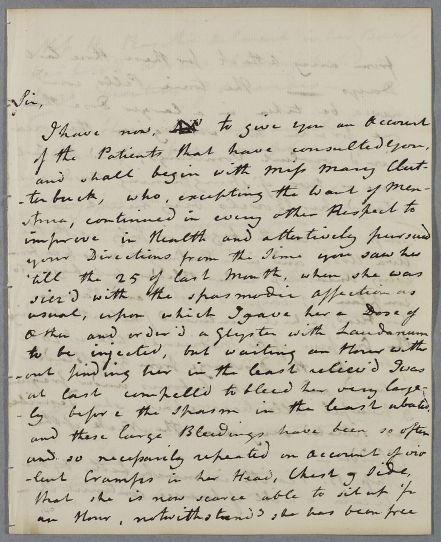 Sir,
I have now, to give you an Account
of the Patients that have consulted you,
and shall begin with Miss Mary Clut-
-terbuck, who, excepting the Want of Men-
strua, continued in every other Respect to
improve in Health and attentively pursued
your Directions from the Time you saw her
'till the 25 of last Month, when she was
seiz'd with the spasmodic affection as
usual, upon which I gave her a Dose of
Æther and order'd a Glyster with Laudanum
to be injected, but waiting an Hour with-
out finding her in the least reliev'd I was
at last compell'd to bleed her very large-
ly before the Spasm in the least abated,
and these large Bleedings have been so often
and so necessarily repeated on Account of vio
-lent Cramps in her Head, Chest & Side,
that she is now scarce able to sit up for
an Hour, notwithstand'g she has been free